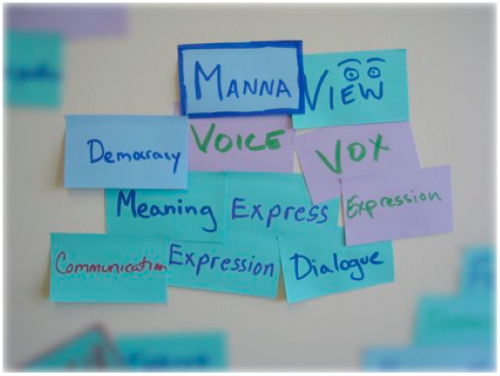 MANNA
VIEW
Democracy
VOICE
VOX
Meaning
Express
Expression
Communication
Expression
Dialogue